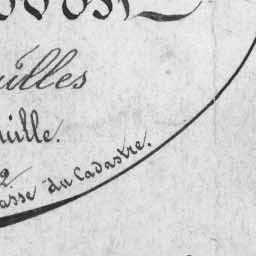 uilles
uille.
2
asse du Cadastre.